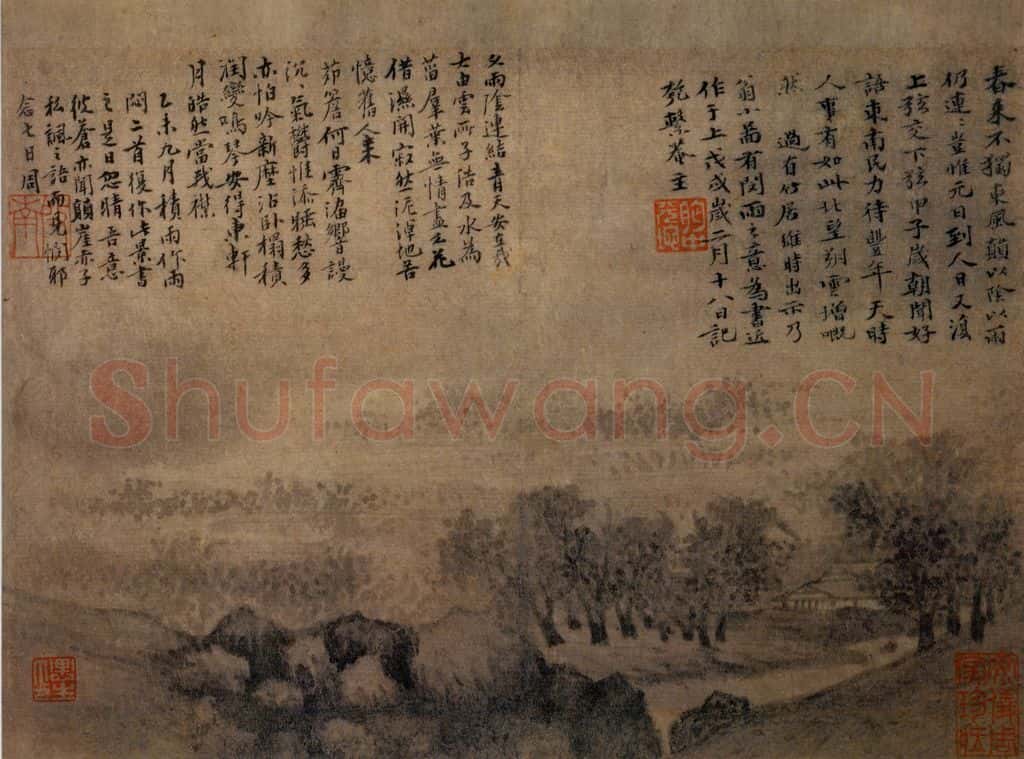 春來不獨東風顛以陰以雨
仍連〻豈惟元日到人日又復
上弦交下弦甲子歲朝聞好
語東南民力待豐年天時
人事有如此北望朔雲增嘅
然 過有竹居維時出示乃
翁小畫有閔雨之意為書近
作于上戊戌歲二月十八日記
匏繫菴主
久雨陰連結青天安在哉
浩及水為
菑羣葉無情盡花
借濕開寂然泥淖地苦
憶舊人來
茆簷何日霽溜響謾
沉〻氣鬱惟添睡愁多
亦怕吟新塵沾卧榻積
潤變鳴琴安得東軒
月皓然當我襟
乙未九月積雨作雨
悶二首復作此景書
之是日忽晴吾意
彼蒼亦聞顛崖赤子
私諷之語而見憫邪
念七日周
Shufawang.CN